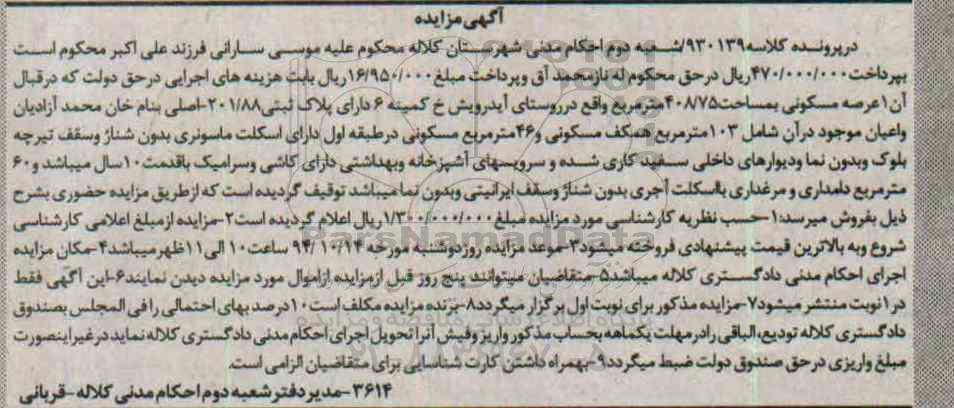 آگهی مزایده
درپرونده کلاسه ۹۳۰۱۳۹/شعبه دوم احکام مدنی شهرستان کلاله محکوم علیه موسی سارانی فرزند علی اکبر محکوم است
بپرداخت ۴۷۰/۰۰۰/۰۰۰ریال درحق محکوم له نازمحمد آق وپرداخت مبلغ ۱۶/۹۵۰/۰۰۰ریال بابت هزینه های اجرایی درحق دولت که درقبال
آن ۱عرصه مسکونی بمساحت ۴۰۸/۷۵مترمربع واقع درروستای آیدرویش خ کمیته ۶ دارای پلاک ثبتی ۲۰۱/۸۸-اصلی بنام خان محمد آزادیان
واعیان موجود درآن شامل ۱۰۳مترمربع همکف مسکونی و۴۶مترمربع مسکونی درطبقه اول دارای اسکلت ماسونری بدون شناژ وسقف تیرچه
بلوک وبدون نما ودیوارهای داخلی سفید کاری شده و سرویسهای آشپزخانه وبهداشتی دارای کاشی وسرامیک باقدمت ۱۰سال میباشد و ۶۰
مترمربع دامداری و مرغداری بااسکلت آجری بدون شناژ وسقف ایرانیتی وبدون نما میباشد توقیف گردیده است که ازطریق مزایده حضوری بشرح
ذیل بفروش میرسد:۱-حسب نظریه کارشناسی مورد مزایده مبلغ ۱/۳۰۰/۰۰۰/۰۰۰ریال اعلام گردیده است۲-مزایده ازمبلغ اعلامی کارشناسی
شروع وبه بالاترین قیمت پیشنهادی فروخته میشود۳-موعد مزایده روزدوشنبه مورخه ۹۴/۱۰/۱۴ ساعت ۱۰ الی ۱۱ظهرمیباشد۴-مکان مزایده
اجرای احکام مدنی دادگستری کلاله میباشد۵-متقاضیان میتوانند پنج روز قبل ازمزایده ازاموال مورد مزایده دیدن نمایند۶-این آگهی فقط
در۱نوبت منتشر میشود۷-مزایده مذکور برای نوبت اول برگزار میگردد۸-برنده مزایده مکلف است ۱۰درصد بهای احتمالی را فی المجلس بصندوق
دادگستری کلاله تودیع،الباقی رادرمهلت یکماهه بحساب مذکور واریز وفیش آنرا تحویل اجرای احکام مدنی دادگستری کلاله نماید درغیراینصورت
مبلغ واریزی درحق صندوق دولت ضبط میگردد۹-بهمراه داشتن کارت شناسایی برای متقاضیان الزامی است.
۳۶۱۴-مدیر دفتر شعبه دوم احکام مدنی کلاله-قربانی
ParsNamadData